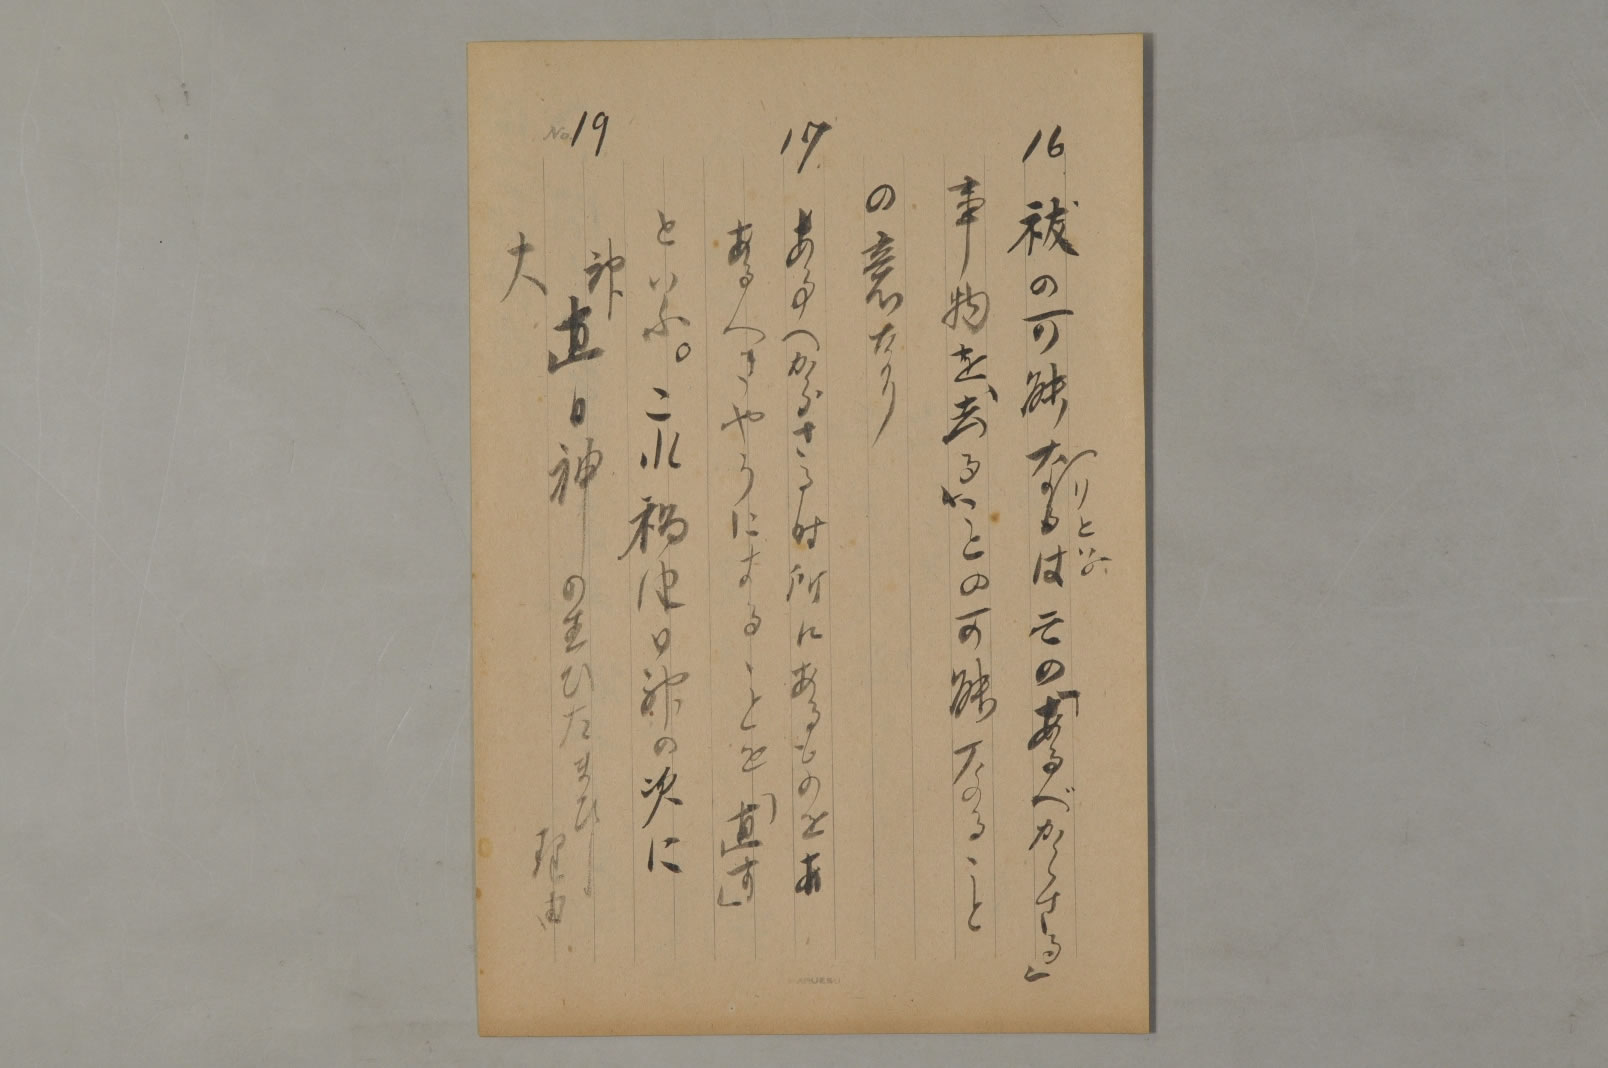 16 祓の可能なるはその「あるべからざる」
(りといふ
事物を、去ることの可能なること
の意たり
17 あるへからさる時所にあるものをあ
あるへきやうにすることを「直す」
といふ。これ禍津日神の次に
神
No.19 直日神の生ひたまひし
大
理由